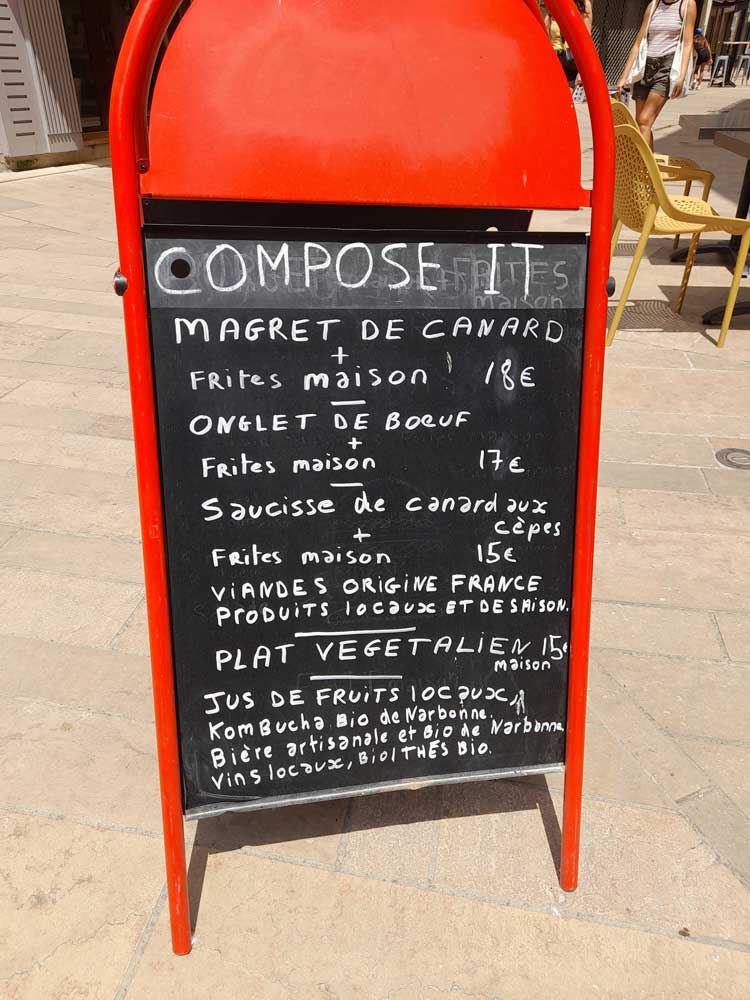 COMPOSE IT
FRITES
maison
MAGRET DE CANARD
+
FRites maison 18€
ONGLET DE BOEUF
+
Frites maison 17€
Saucisse de canard aux
cèpes
+
Frites maison 15€
VIANDES ORIGINE FRANCE
PRODUITS locaux ET DE SAISON.
PLAT VEGETALIEN 15€
maison
JUS DE FRUITS locaux,
KomBucha Bio de Narbonne.
Bière artisanale et Bio de Narbonne
Vins locaux, Bio/THÉS Bio.